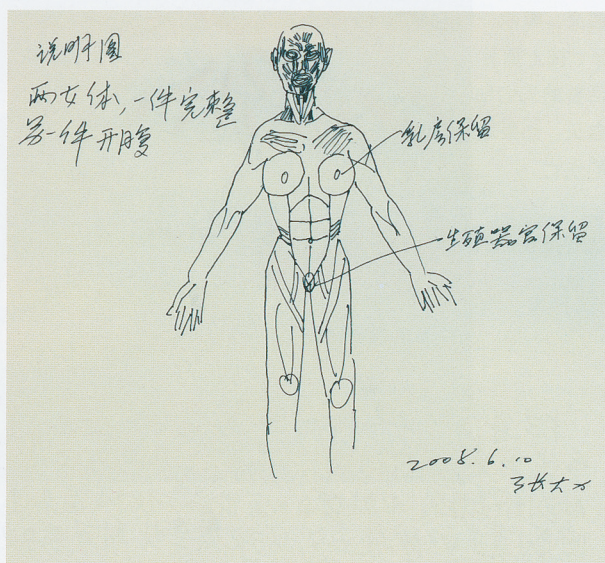 说明图
两女体，一件完整
另一件开腹
乳房保留
生殖器官保留
2008.6.10
张大力